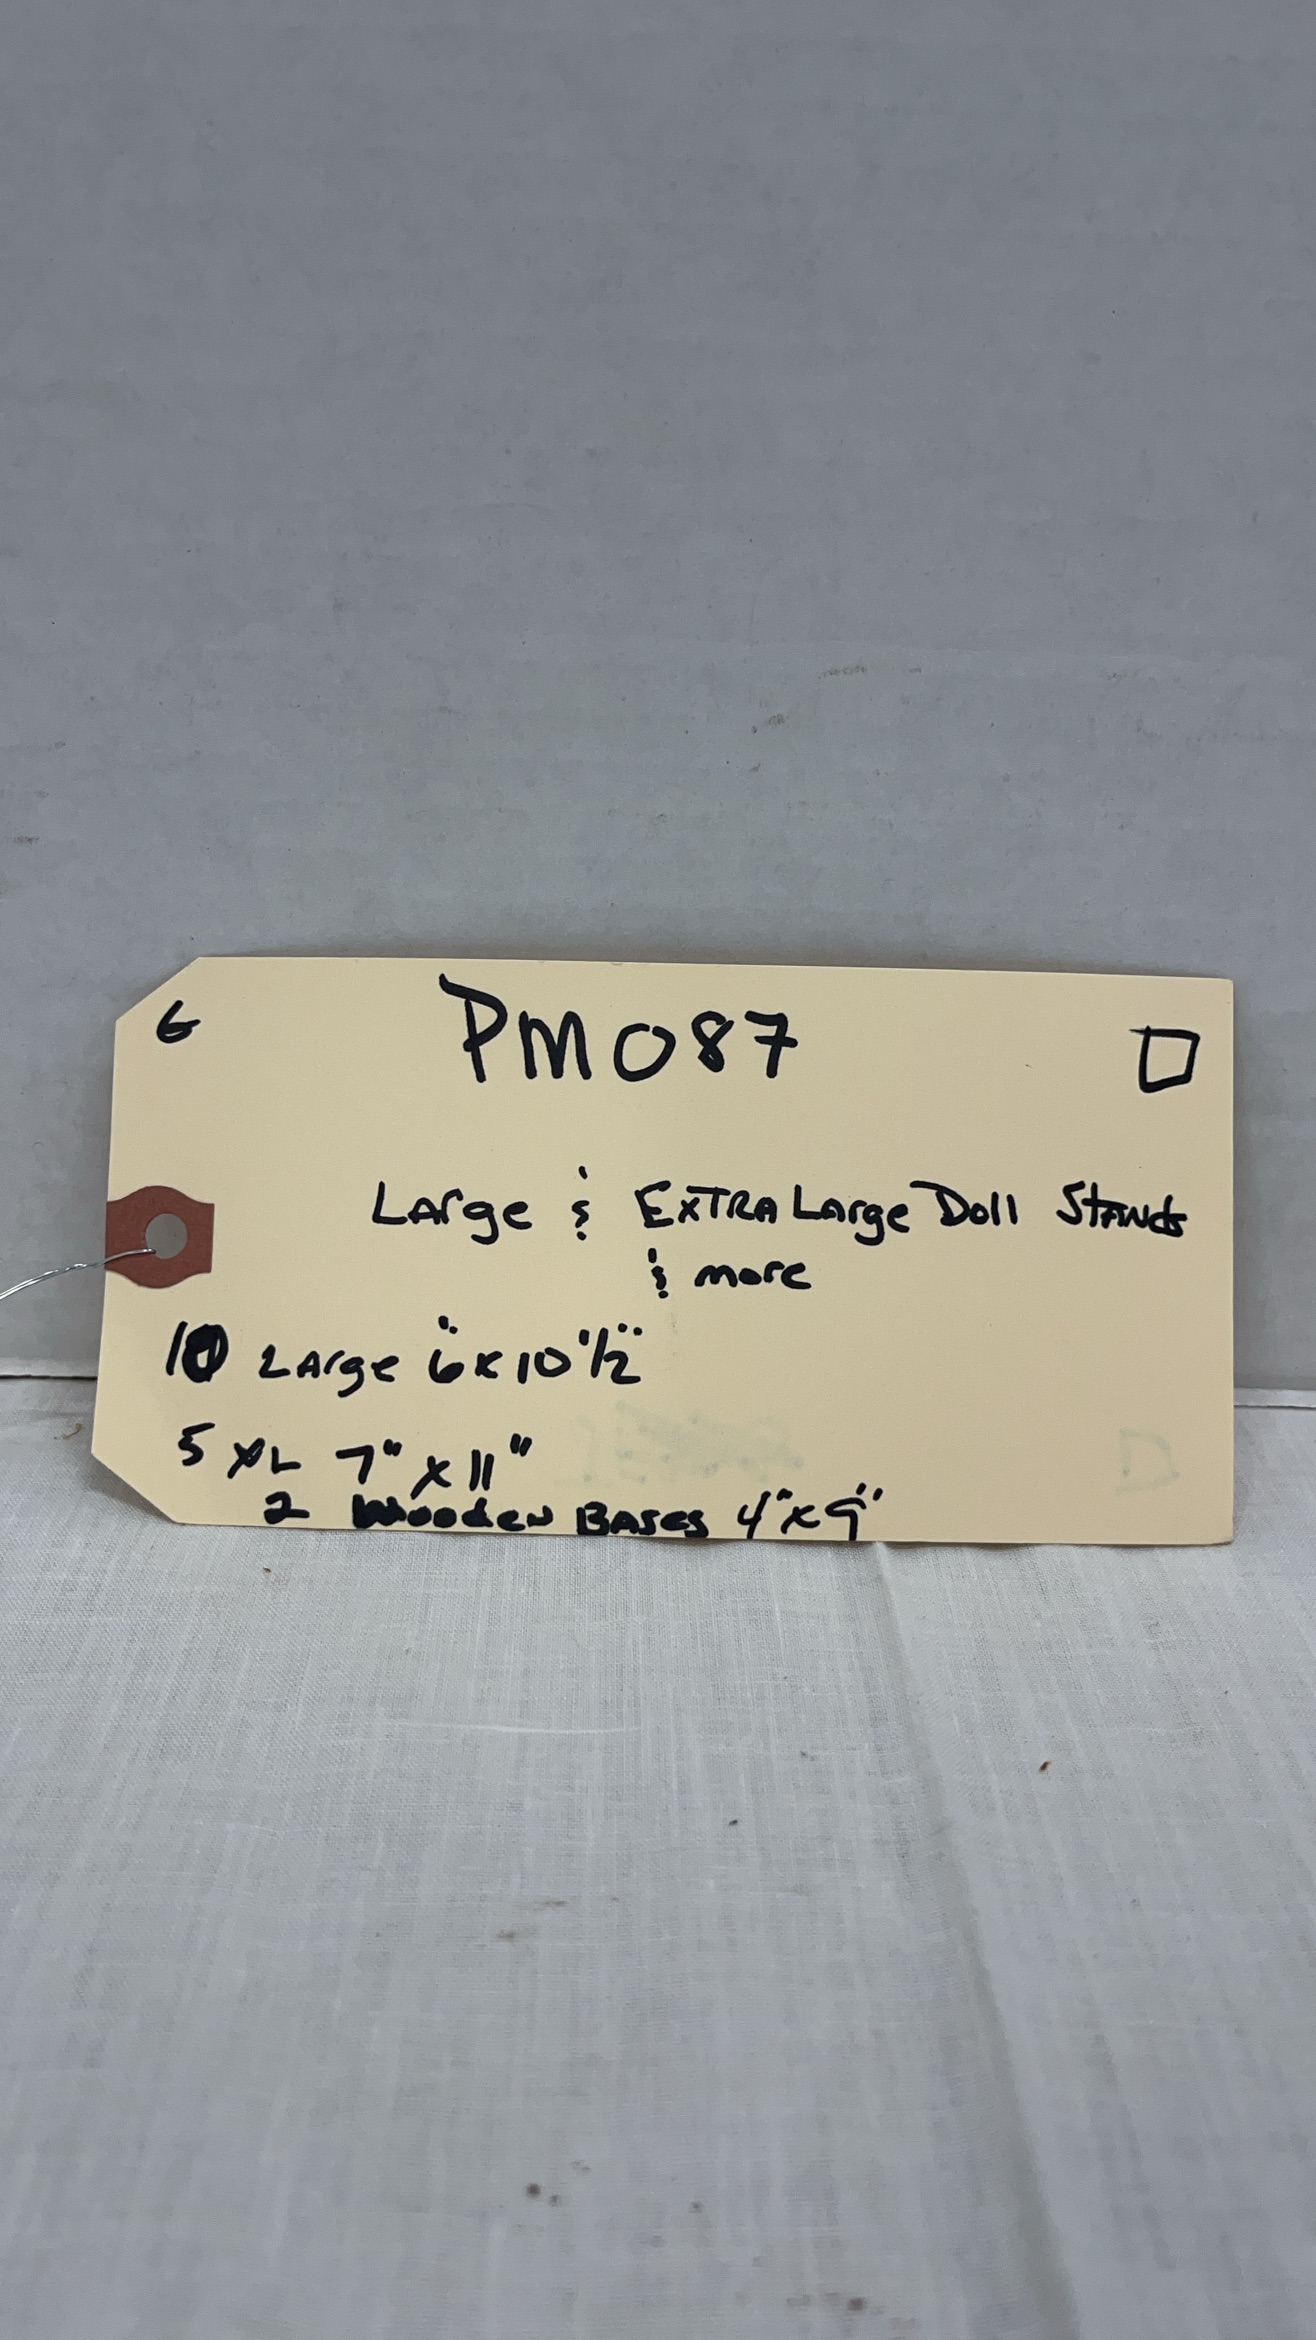 G PM087
Large & Extra Large Doll Stands
& more
10 Large 6" x 10 1/2"
5 XL 7" x 11"
2 Wooden Bases 4" x 9"